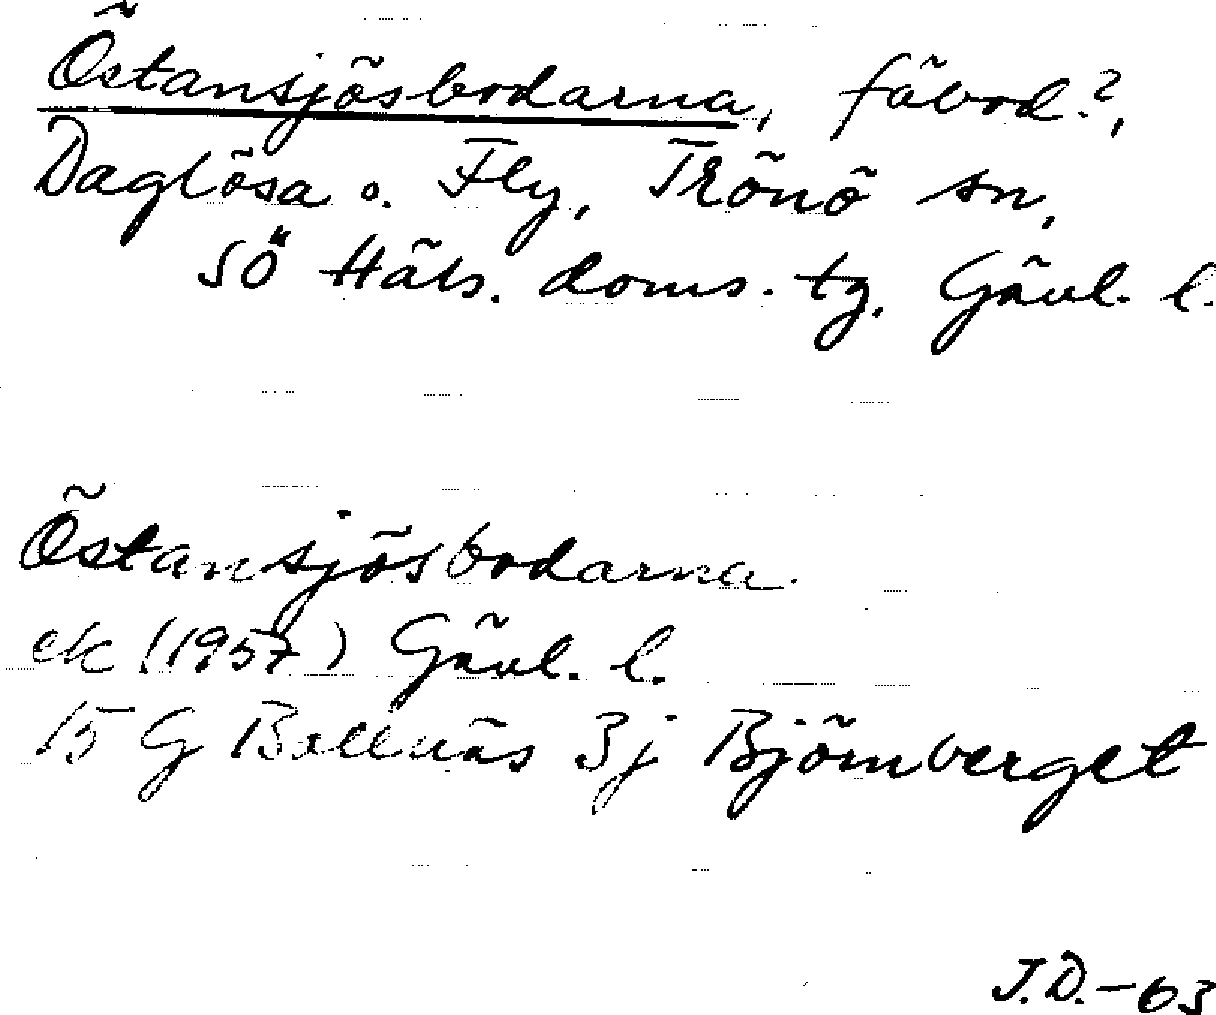 Östansjösbodarna, fäbod?,
Daglösa o. Fly, Trönö sn,
SÖ Häls. doms. tg. Gävl. l.
Östansjösbodarna
ek (1957) Gävl. l.
15 G Bollnäs 3j Björnberget
J.D.-63